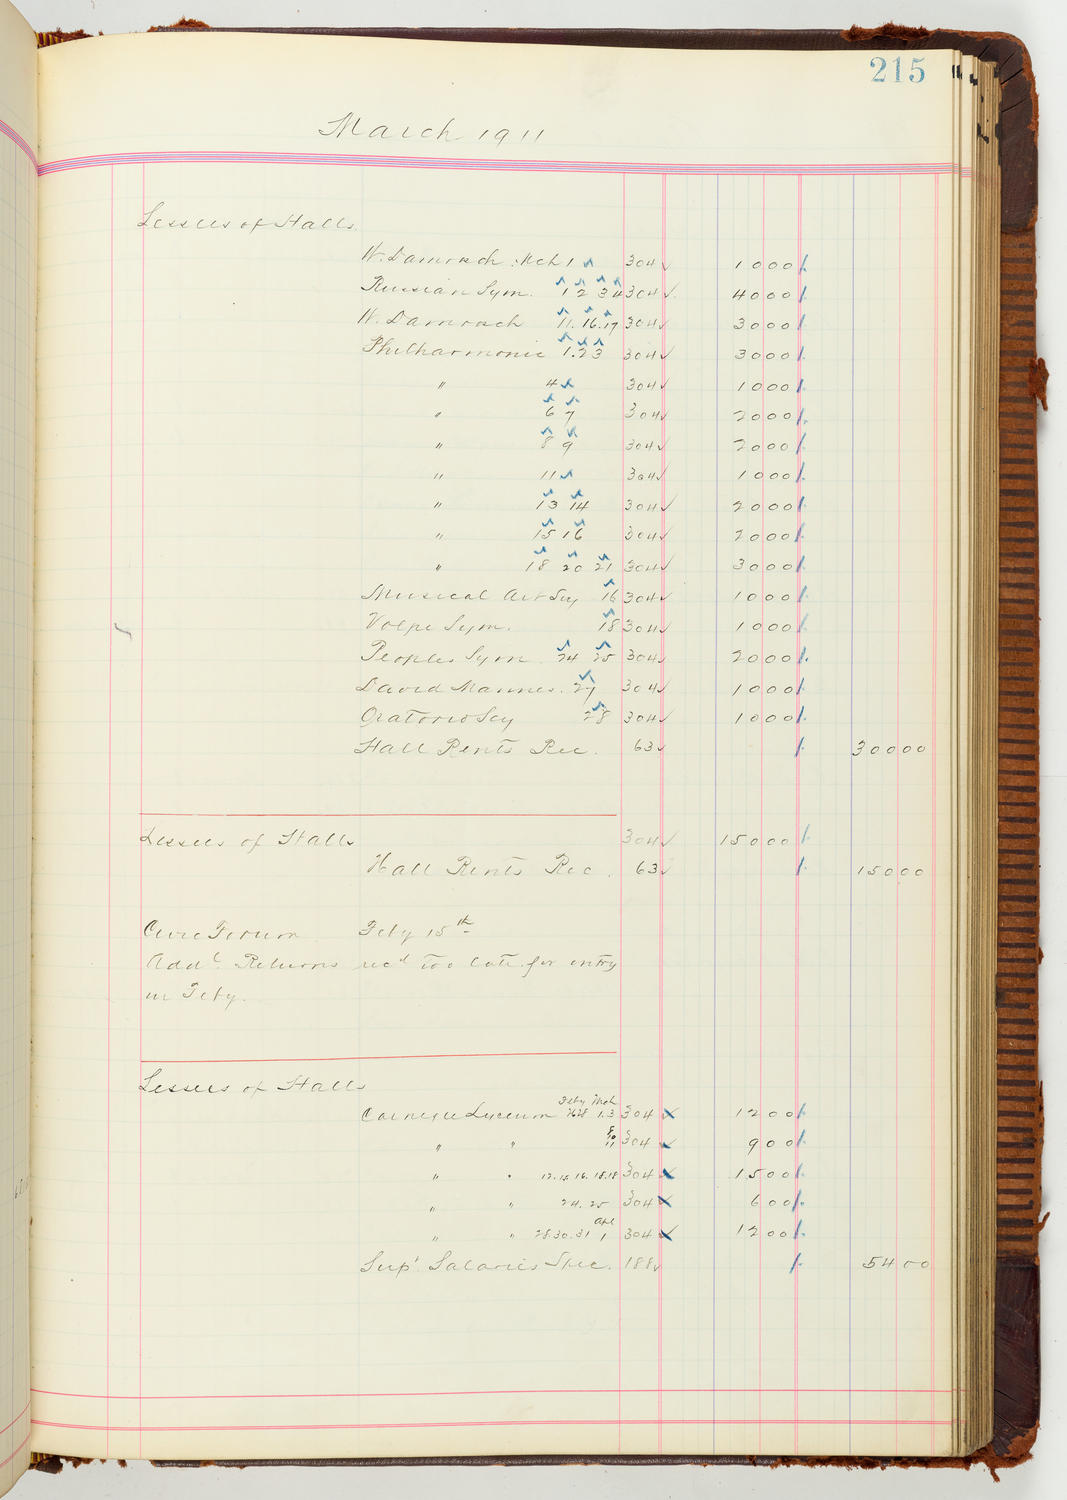 215
March 1911
Lessees of Halls.
W. Damrosch. Mch 1 304 1000
Russian Sym. 1 2 3 4 304 4000
W. Damrosch 11. 16. 17 304 3000
Philharmonic 1. 2 3 304 3000
" 4 304 1000
" 6 7 304 2000
" 8 9 304 2000
" 11 304 1000
" 13 14 304 2000
" 15 16 304 2000
" 18 20 21 304 3000
Musical Art Scy 16 304 1000
Volpe Sym. 18 304 1000
Peoples Sym 24 25 304 2000
David Mannes. 27 304 1000
Oratorio Scy 28 304 1000
Hall Rents Rec. 63 30000
Lessees of Halls 304 15000
Hall Rents Rec. 63 15000
Civic Forum Feby 15th
Addl. Returns recd too late for entry
in Feby.
Lessees of Halls
Feby Mch
Carnegie Lyceum 26 28 1. 3 304 1200
" " 8 10 11 304 900
" " 304 1500
" " 24. 25 304 600
Apl
" " 28. 30. 31 1 304 1200
Sup'. Salaries Spec. 188 5400